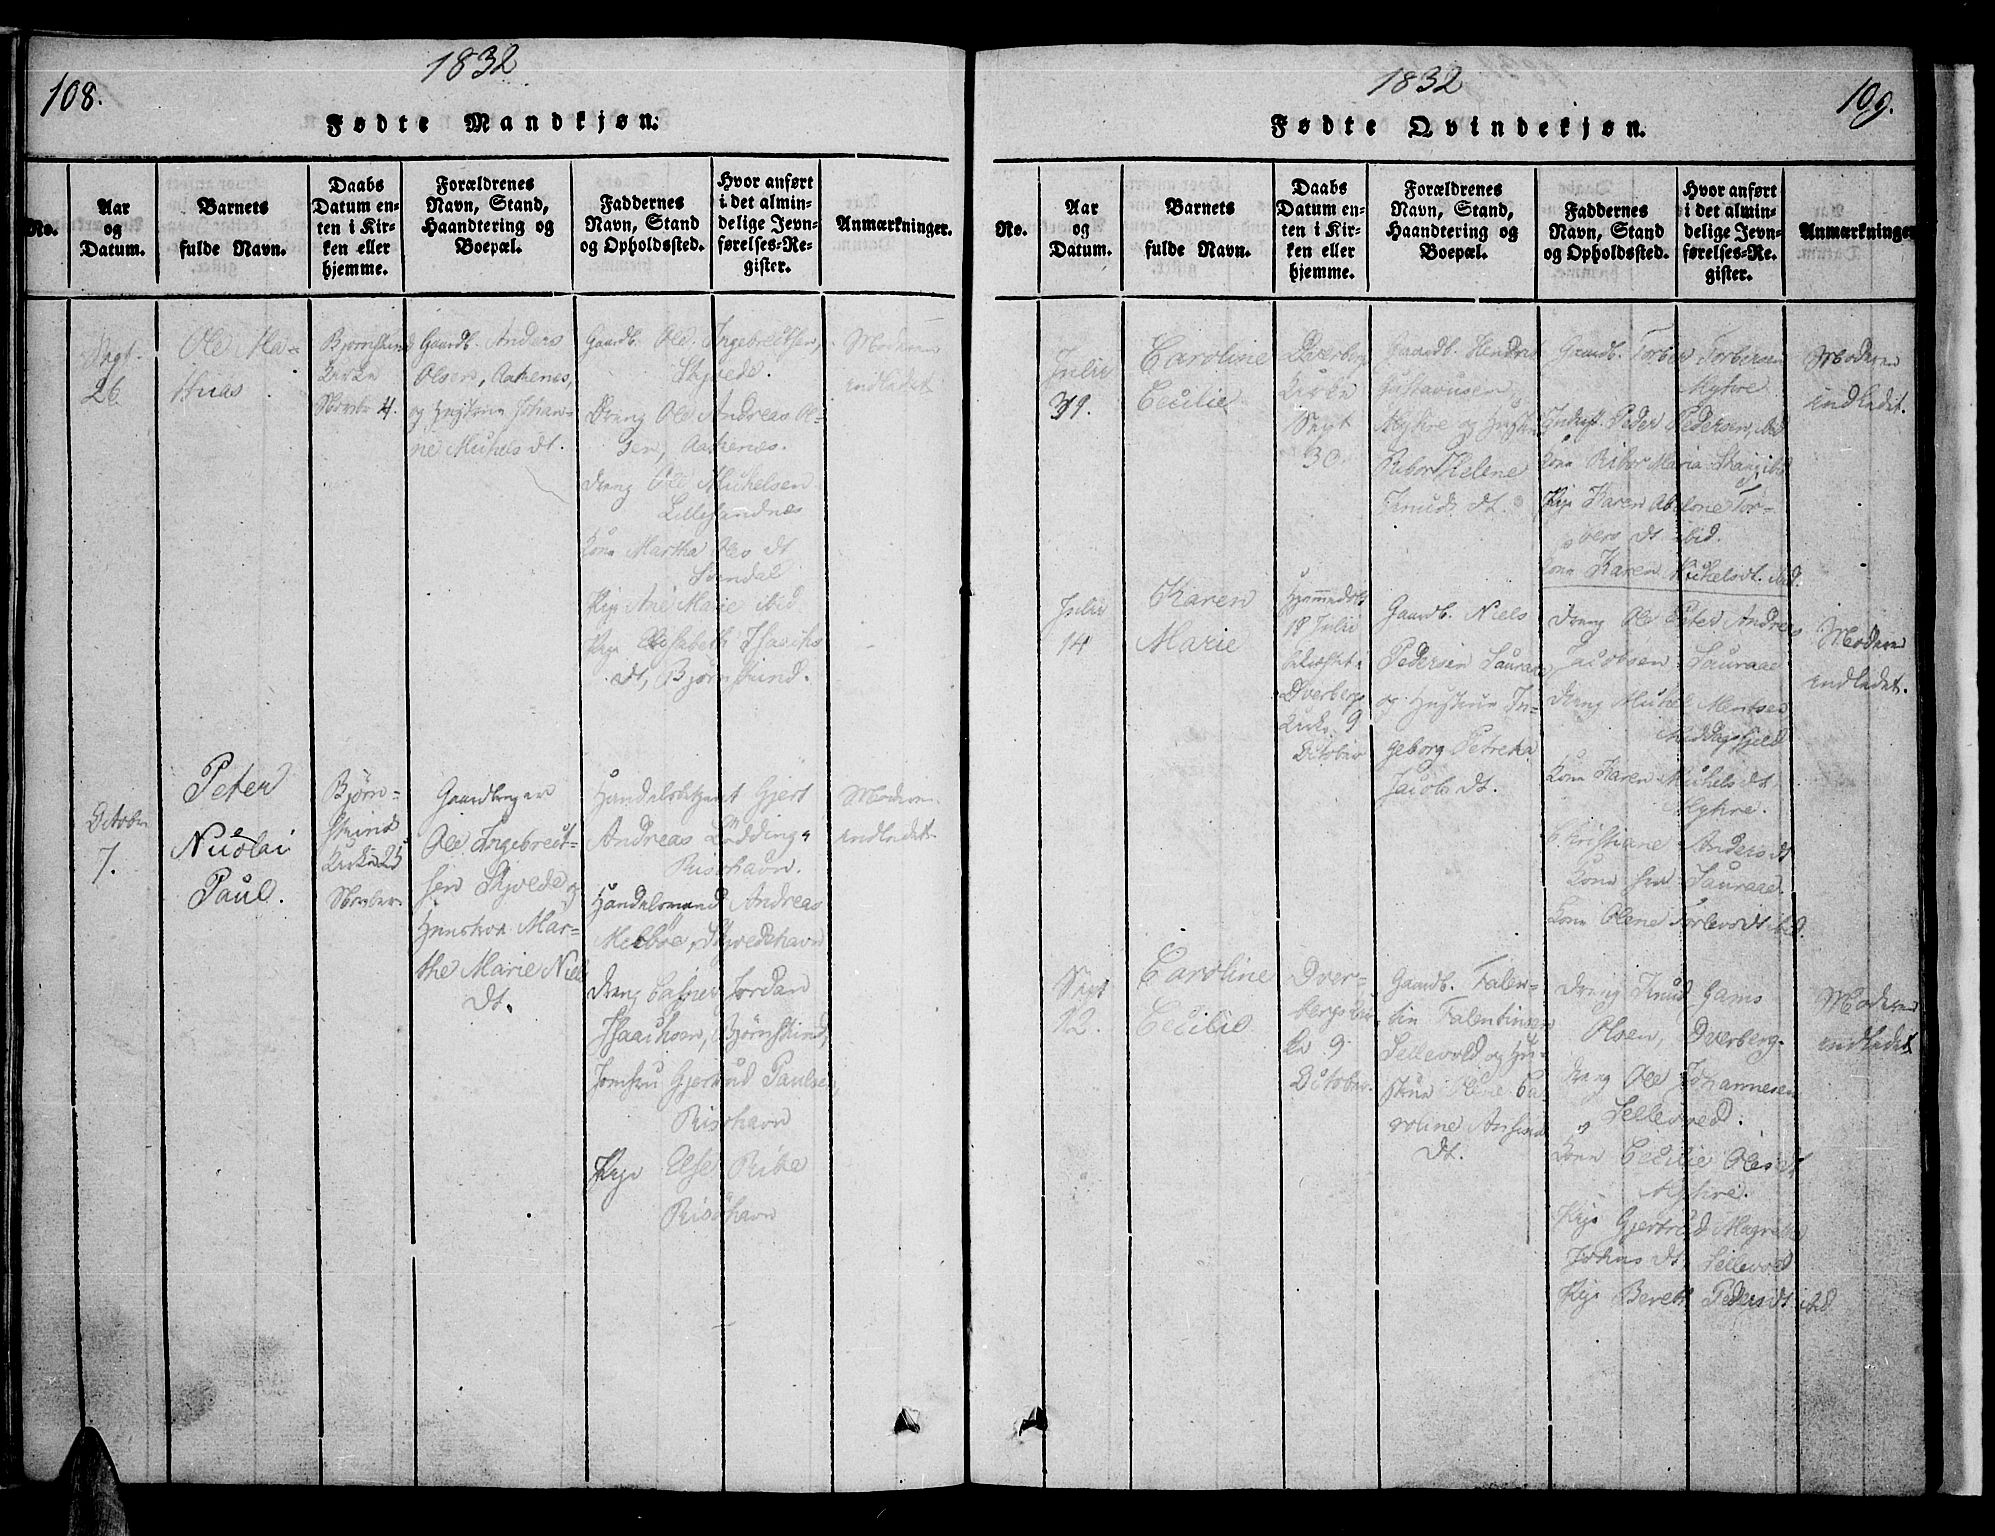 108.
1832
Fødte Mandkjøn.
No.
Aar
og
Datum.
Barnets
fulde Navn.
Daabs
Datum en-
ten i Kir-
ken eller
hjemme.
Forældrenes
Navn, Stand,
Haandtering og
Boepæl.
Faddernes
Navn, Stand
og Opholdssted.
Hvor anført
i det almin-
delige Jevn-
førelses-Re-
gister.
Anmærkninger.
Sept.
26
Ole Ma-
thias
Kirke
4.
Gaardb. Anders
Olsen, Aaknes,
og Hustrue Johan-
ne Michels dt.
Gaardb. Ole Ingebrectsen,
Skjvede.
Dreng Ole Andreas Ol-
sen, Aaknes.
Dreng Ole Michelsen
Kone Martha Oles dt
Pige Ane Marie ibid
Pige Elisabeth Isachs
dt, Bjørnskind.
Moderen
indledet
October
7.
Peter
Nicolai
Paul.
Bjørn-
skind
Kirke 25
Gaardbruger
Ole Ingebrect-
sen Skjvede og
Hunstroe Mar-
the Marie Niels
dt.
Andreas Lødding,
Risøhavn.
Handelsmand Andreas
Melbøe, Skjvedehavn
Dreng Casper Jordan
Isaachsen, Bjørnskind,
Jomfru Gjertrud Paulsen,
Risøhavn
Pige Else Ribe
Risøhavn
Moderen
indledet
1832
109.
Fødte Qvindekjøn.
No.
Aar
og
Datum.
Barnets
fulde Navn.
Daabs
Datum en-
ten i Kir-
ken eller
hjemme.
Forældrenes
Navn, Stand,
Haandtering og
Boepæl.
Faddernes
Navn, Stand
og Opholdssted.
Hvor anført
i det almin-
delige Jevn-
førelses-Re-
gister.
Anmærkninger
Julii
Caroline
Cecilie
Dverberg
Kirke
Sept
30.
Gaardb. Hendrik
Gustavusen,
Myhre og Hustrue
Helene
Knuds dt.
Gaardb. Torber Torbersen
Myhre
Peder Pedersen, ibid
Kone Maria ibid
Pige Karen Abelone Tor-
bers dt ibid.
Kone Karen Michelsdt. ibid.
Moderen
indledet.
Julii
14
Karen
Marie
Hjemmedøbt
18 Julii
Dverbergs
Kirke 9
October
Gaardb. Niels
Pedersen Sauraae
og Hustrue In-
geborg Petrekka
Jacobs dt.
Dreng Ole Peter Andreas
Jacobsen Sauraae
Dreng Michel Mentsen
Kone Karen Michels dt,
Myhre.
Christiane Anders dt
Sauraae.
Kone Olene Torlevs dt ibid.
Moderen
indledet.
Sept
12.
Caroline
Cecilie
Dver-
bergs Kir-
ke 9
October.
Gaardb. Falen-
tin Falentinsen
Sellevold og Hu-
strue Olene Ca-
roline
dt.
Dreng Knud Gams
Olsen, Dverberg.
Dreng Ole Johannesen
Kone Cecilie Oles dt
Myhre.
Pige Gjertrud Magretha
Johns dt, Sellevold
Pige Bereth Peders dt ibid
Moderen
indledet.